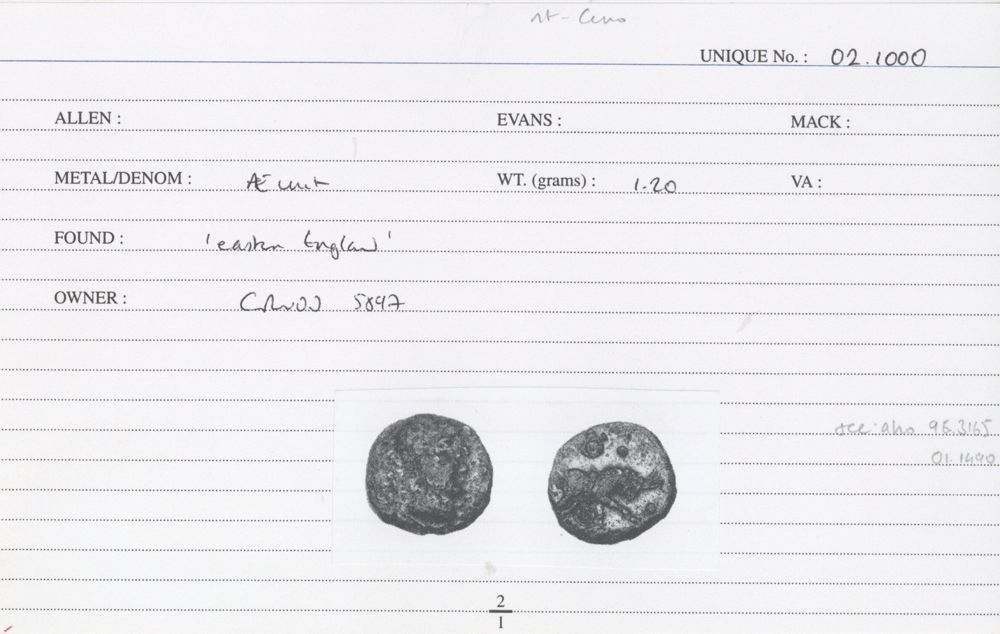 UNIQUE No. : 02.1000
ALLEN : EVANS : MACK :
METAL/DENOM : Æ unit WT. (grams) : 1.20 VA :
FOUND : 'eastern England'
OWNER : 5897
see also 96.3165
01.1490
2
1